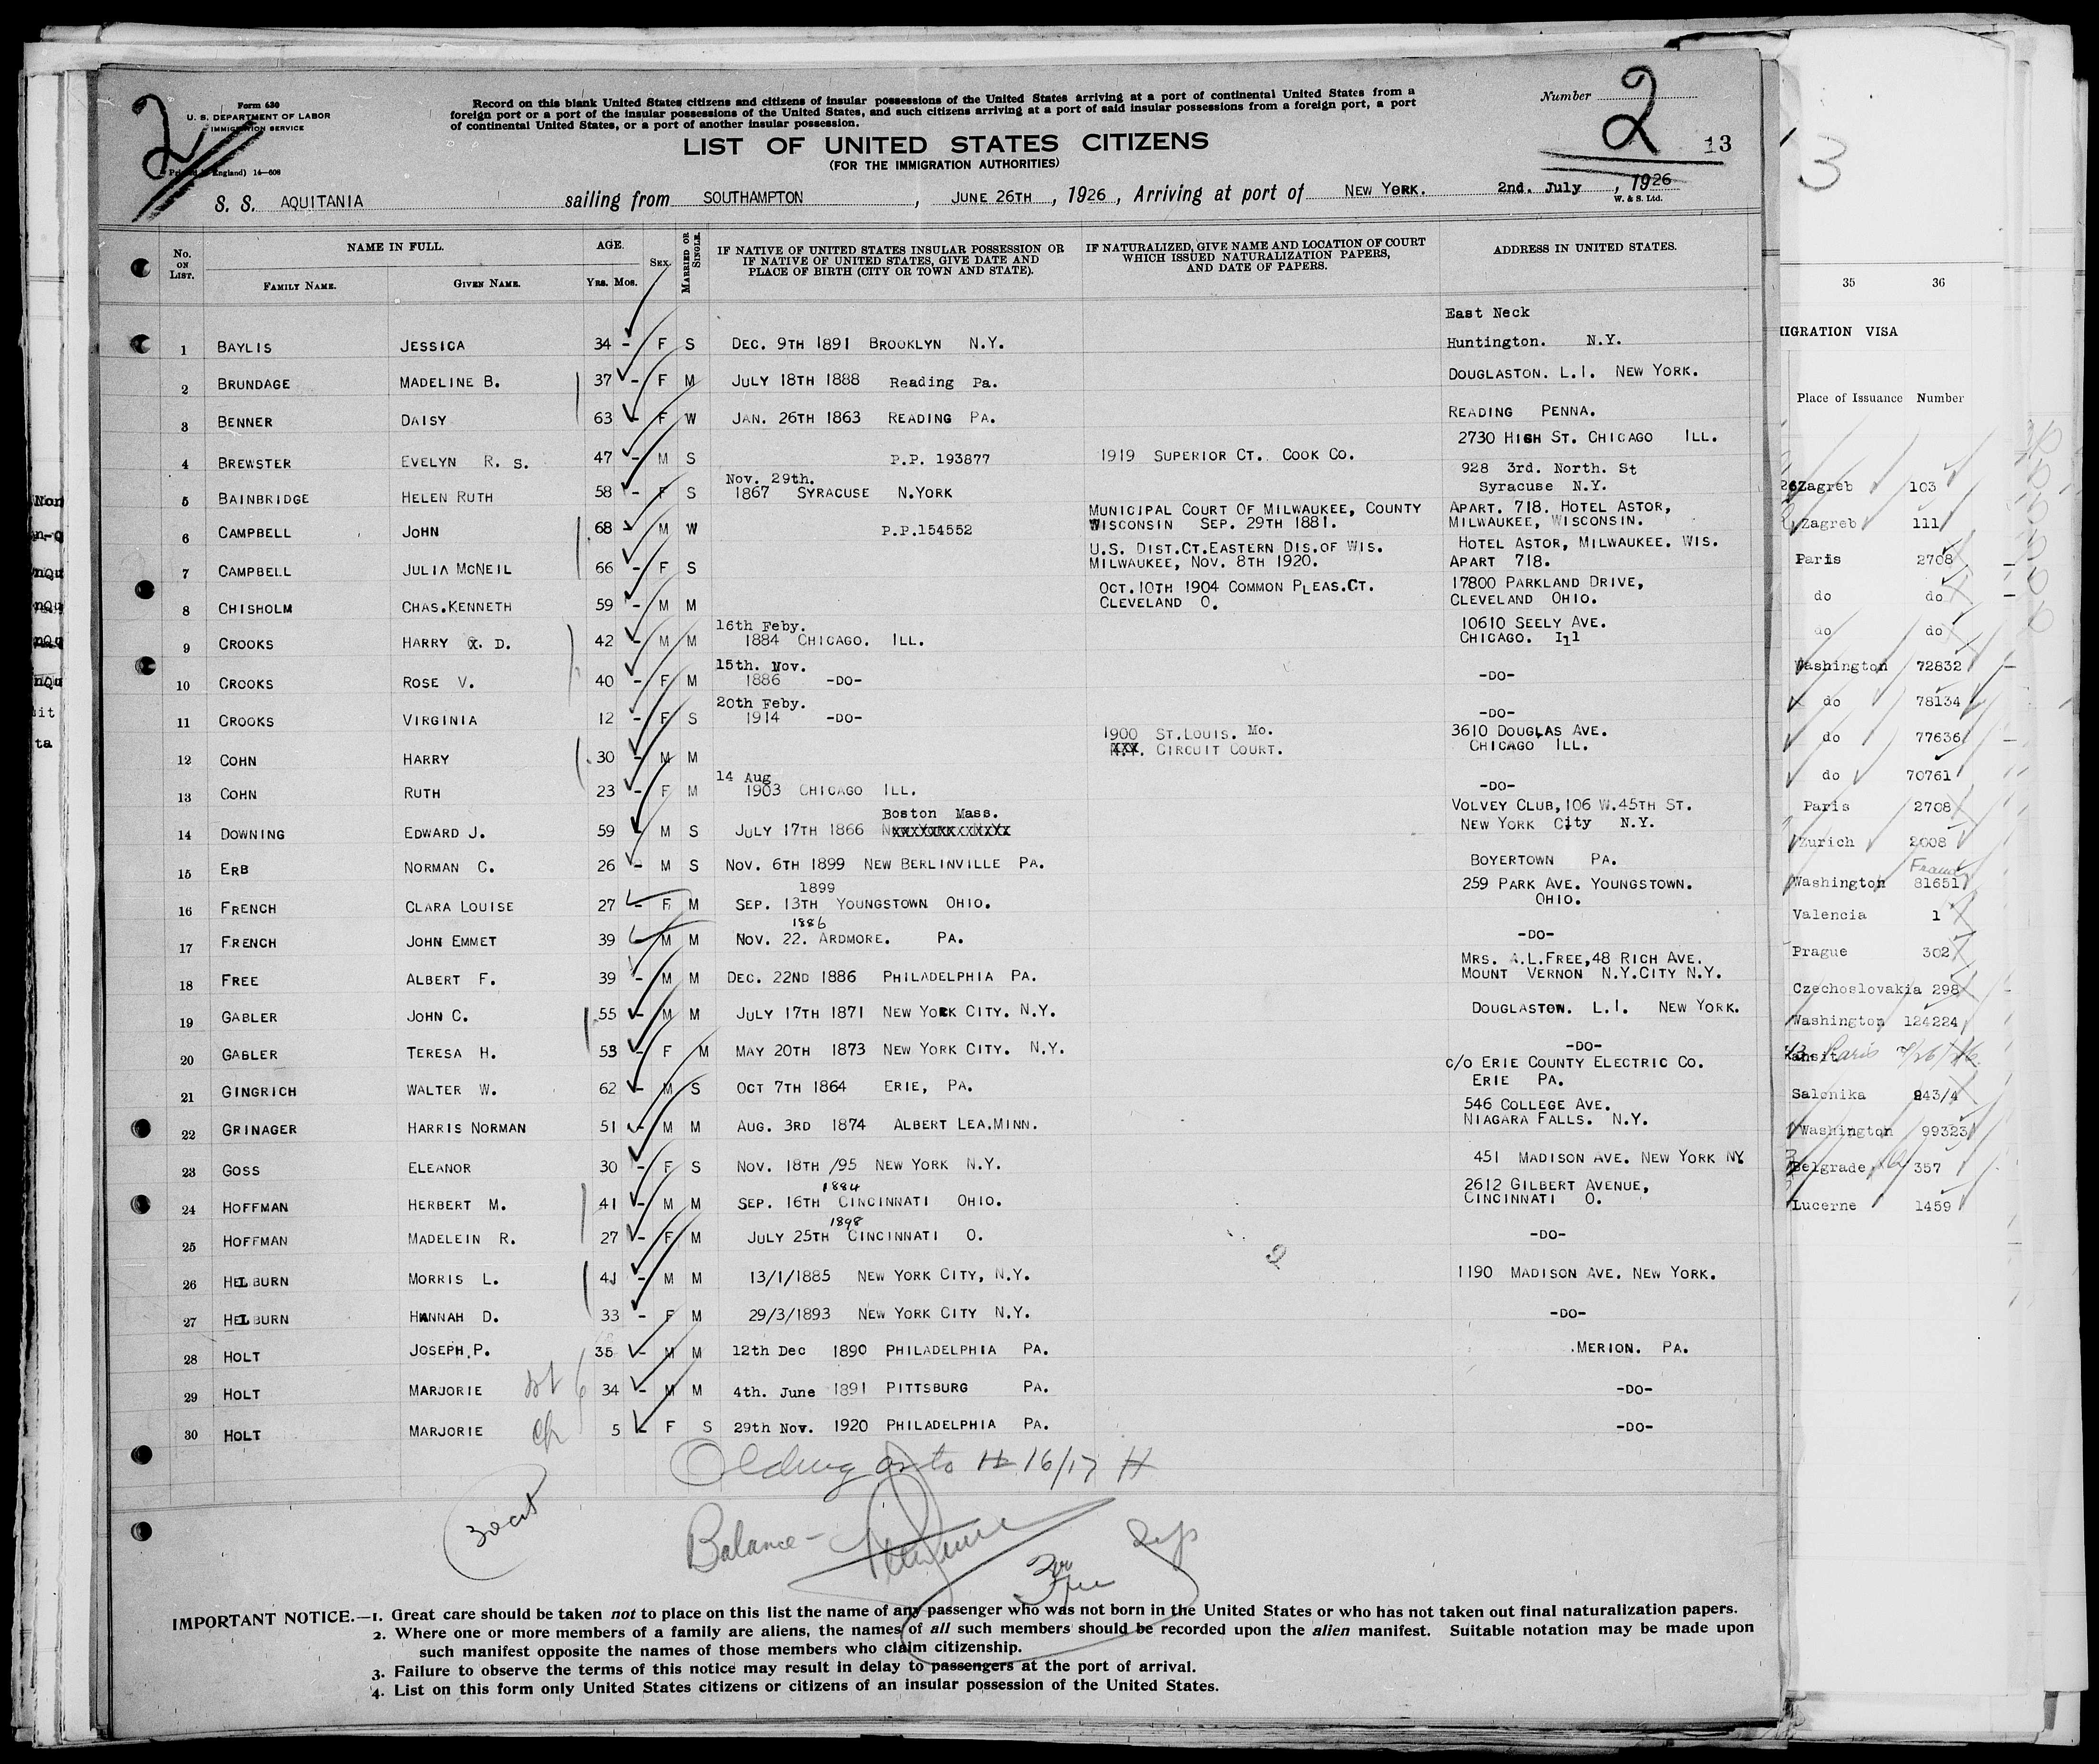 2
Form 630
U. S. DEPARTMENT OF LABOR
IMMIGRATION SERVICE
(Printed in England) 14—608
Record on this blank United States citizens and citizens of insular possessions of the United States arriving at a port of continental United States from a
foreign port or a port of the insular possessions of the United States, and such citizens arriving at a port of said insular possessions from a foreign port, a port
of continental United States, or a port of another insular possession.
Number 2
13
LIST OF UNITED STATES CITIZENS
(FOR THE IMMIGRATION AUTHORITIES)
S. S. AQUITANIA sailing from SOUTHAMPTON, JUNE 26TH, 1926, Arriving at port of NEW YORK. 2nd. July, 1926
W. & S. Ltd.
No. ON LIST. NAME IN FULL. FAMILY NAME. GIVEN NAME. AGE. YRS. MOS. SEX. MARRIED OR SINGLE. IF NATIVE OF UNITED STATES INSULAR POSSESSION OR IF NATIVE OF UNITED STATES, GIVE DATE AND PLACE OF BIRTH (CITY OR TOWN AND STATE). IF NATURALIZED, GIVE NAME AND LOCATION OF COURT WHICH ISSUED NATURALIZATION PAPERS, AND DATE OF PAPERS. ADDRESS IN UNITED STATES.
1 BAYLIS JESSICA 34 - F S DEC. 9TH 1891 BROOKLYN N.Y. East Neck Huntington. N.Y.
2 BRUNDAGE MADELINE B. 37 - F M JULY 18TH 1888 Reading Pa. DOUGLASTON. L.I. NEW YORK.
3 BENNER DAISY 63 - F W JAN. 26TH 1863 READING PA. READING PENNA.
4 BREWSTER EVELYN R. S. 47 - M S P.P. 193877 1919 SUPERIOR CT. COOK CO. 2730 HIGH ST. CHICAGO ILL.
5 BAINBRIDGE HELEN RUTH 58 - F S Nov. 29th. 1867 SYRACUSE N.YORK 928 3rd. North. St Syracuse N.Y.
6 CAMPBELL JOHN 68 - M W P.P.154552 MUNICIPAL COURT OF MILWAUKEE, COUNTY WISCONSIN SEP. 29TH 1881. APART. 718. HOTEL ASTOR, MILWAUKEE, WISCONSIN.
7 CAMPBELL JULIA MCNEIL 66 - F S U.S. DIST.CT.EASTERN DIS.OF WIS. MILWAUKEE, NOV. 8TH 1920. HOTEL ASTOR, MILWAUKEE. WIS. APART 718.
8 CHISHOLM CHAS.KENNETH 59 - M M OCT.10TH 1904 COMMON PLEAS.CT. CLEVELAND O. 17800 PARKLAND DRIVE, CLEVELAND OHIO.
9 CROOKS HARRY D. 42 - M M 16th Feby. 1884 CHICAGO. ILL. 10610 SEELY AVE. CHICAGO. Ill
10 CROOKS ROSE V. 40 - F M 15th. Nov. 1886 -DO- -DO-
11 CROOKS VIRGINIA 12 - F S 20th Feby. 1914 -DO- -DO-
12 COHN HARRY 30 - M M 1900 ST.LOUIS. Mo. CIRCUIT COURT. 3610 DOUGLAS AVE. CHICAGO ILL.
13 COHN RUTH 23 - F M 14 Aug 1903 CHICAGO ILL. -DO-
14 DOWNING EDWARD J. 59 M S JULY 17TH 1866 Boston Mass. VOLVEY CLUB,106 W.45TH ST. NEW YORK City N.Y.
15 ERB NORMAN C. 26 - M S NOV. 6TH 1899 NEW BERLINVILLE PA. BOYERTOWN PA.
16 FRENCH CLARA LOUISE 27 F M SEP. 13TH 1899 YOUNGSTOWN OHIO. 259 PARK AVE. YOUNGSTOWN. OHIO.
17 FRENCH JOHN EMMET 39 M M NOV. 22. 1886 ARDMORE. PA. -DO-
18 FREE ALBERT F. 39 - M M DEC. 22ND 1886 PHILADELPHIA PA. MRS. A.L.FREE,48 RICH AVE. MOUNT VERNON N.Y.CITY N.Y.
19 GABLER JOHN C. 55 - M M JULY 17TH 1871 NEW YORK CITY. N.Y. DOUGLASTON. L.I. NEW YORK.
20 GABLER TERESA H. 53 - F M MAY 20TH 1873 NEW YORK CITY. N.Y. -DO-
21 GINGRICH WALTER W. 62 - M S OCT 7TH 1864 ERIE, PA. C/O ERIE COUNTY ELECTRIC CO. ERIE PA.
22 GRINAGER HARRIS NORMAN 51 - M M AUG. 3RD 1874 ALBERT LEA.MINN. 546 COLLEGE AVE. NIAGARA FALLS. N.Y.
23 GOSS ELEANOR 30 - F S NOV. 18TH /95 NEW YORK N.Y. 451 MADISON AVE. NEW YORK NY
24 HOFFMAN HERBERT M. 41 - M M SEP. 16TH 1884 CINCINNATI OHIO. 2612 GILBERT AVENUE, CINCINNATI O.
25 HOFFMAN MADELEIN R. 27 - F M JULY 25TH 1898 CINCINNATI O. -DO-
26 HELBURN MORRIS L. 41 - M M 13/1/1885 NEW YORK CITY, N.Y. 1190 MADISON AVE. NEW YORK.
27 HELBURN HANNAH D. 33 - F M 29/3/1893 NEW YORK CITY N.Y. -DO-
28 HOLT JOSEPH.P. 35 - M M 12th Dec 1890 PHILADELPHIA PA. MERION. PA.
29 HOLT MARJORIE 34 - M M 4th. June 1891 PITTSBURG PA. -DO-
30 HOLT MARJORIE 5 - F S 29th Nov. 1920 PHILADELPHIA PA. -DO-
16/17 H
Balance -
IMPORTANT NOTICE.—1. Great care should be taken not to place on this list the name of any passenger who was not born in the United States or who has not taken out final naturalization papers.
2. Where one or more members of a family are aliens, the names of all such members should be recorded upon the alien manifest. Suitable notation may be made upon
such manifest opposite the names of those members who claim citizenship.
3. Failure to observe the terms of this notice may result in delay to passengers at the port of arrival.
4. List on this form only United States citizens or citizens of an insular possession of the United States.
3
35 36
IGRATION VISA
Place of Issuance Number
Zagreb 103
Zagreb 111
Paris 2708
do do
do do
Washington 72832
do 78134
do 77636
do 70761
Paris 2708
Zurich 2008
Washington 81651
Valencia 1
Prague 302
Czechoslovakia 298
Washington 124224
Paris
Salonika 943/4
Washington 99323
Belgrade 357
Lucerne 1459